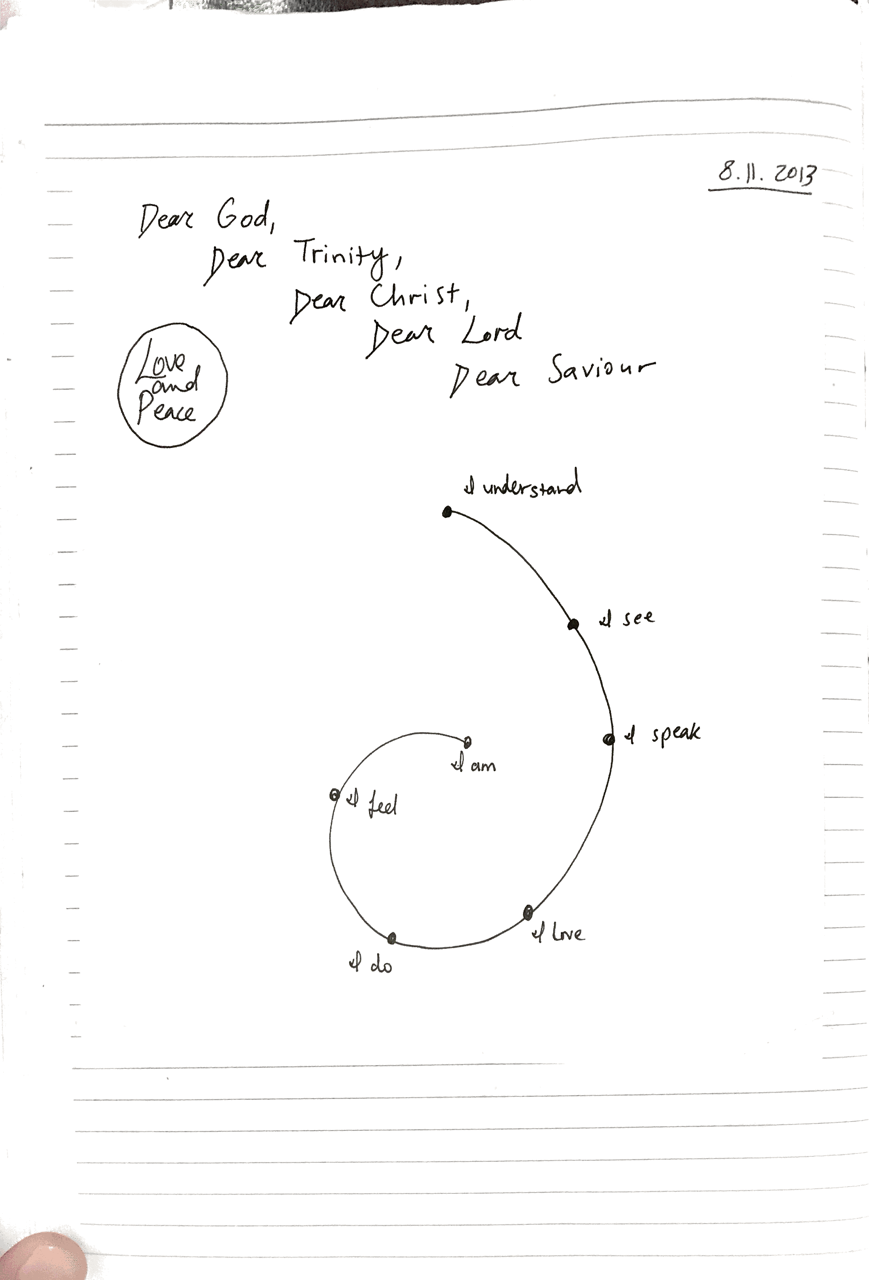 8.11.2013
Dear God,
Dear Trinity,
Dear Christ,
Dear Lord
Dear Saviour
Love
and
Peace
I understand
I see
I speak
I am
I feel
I love
I do